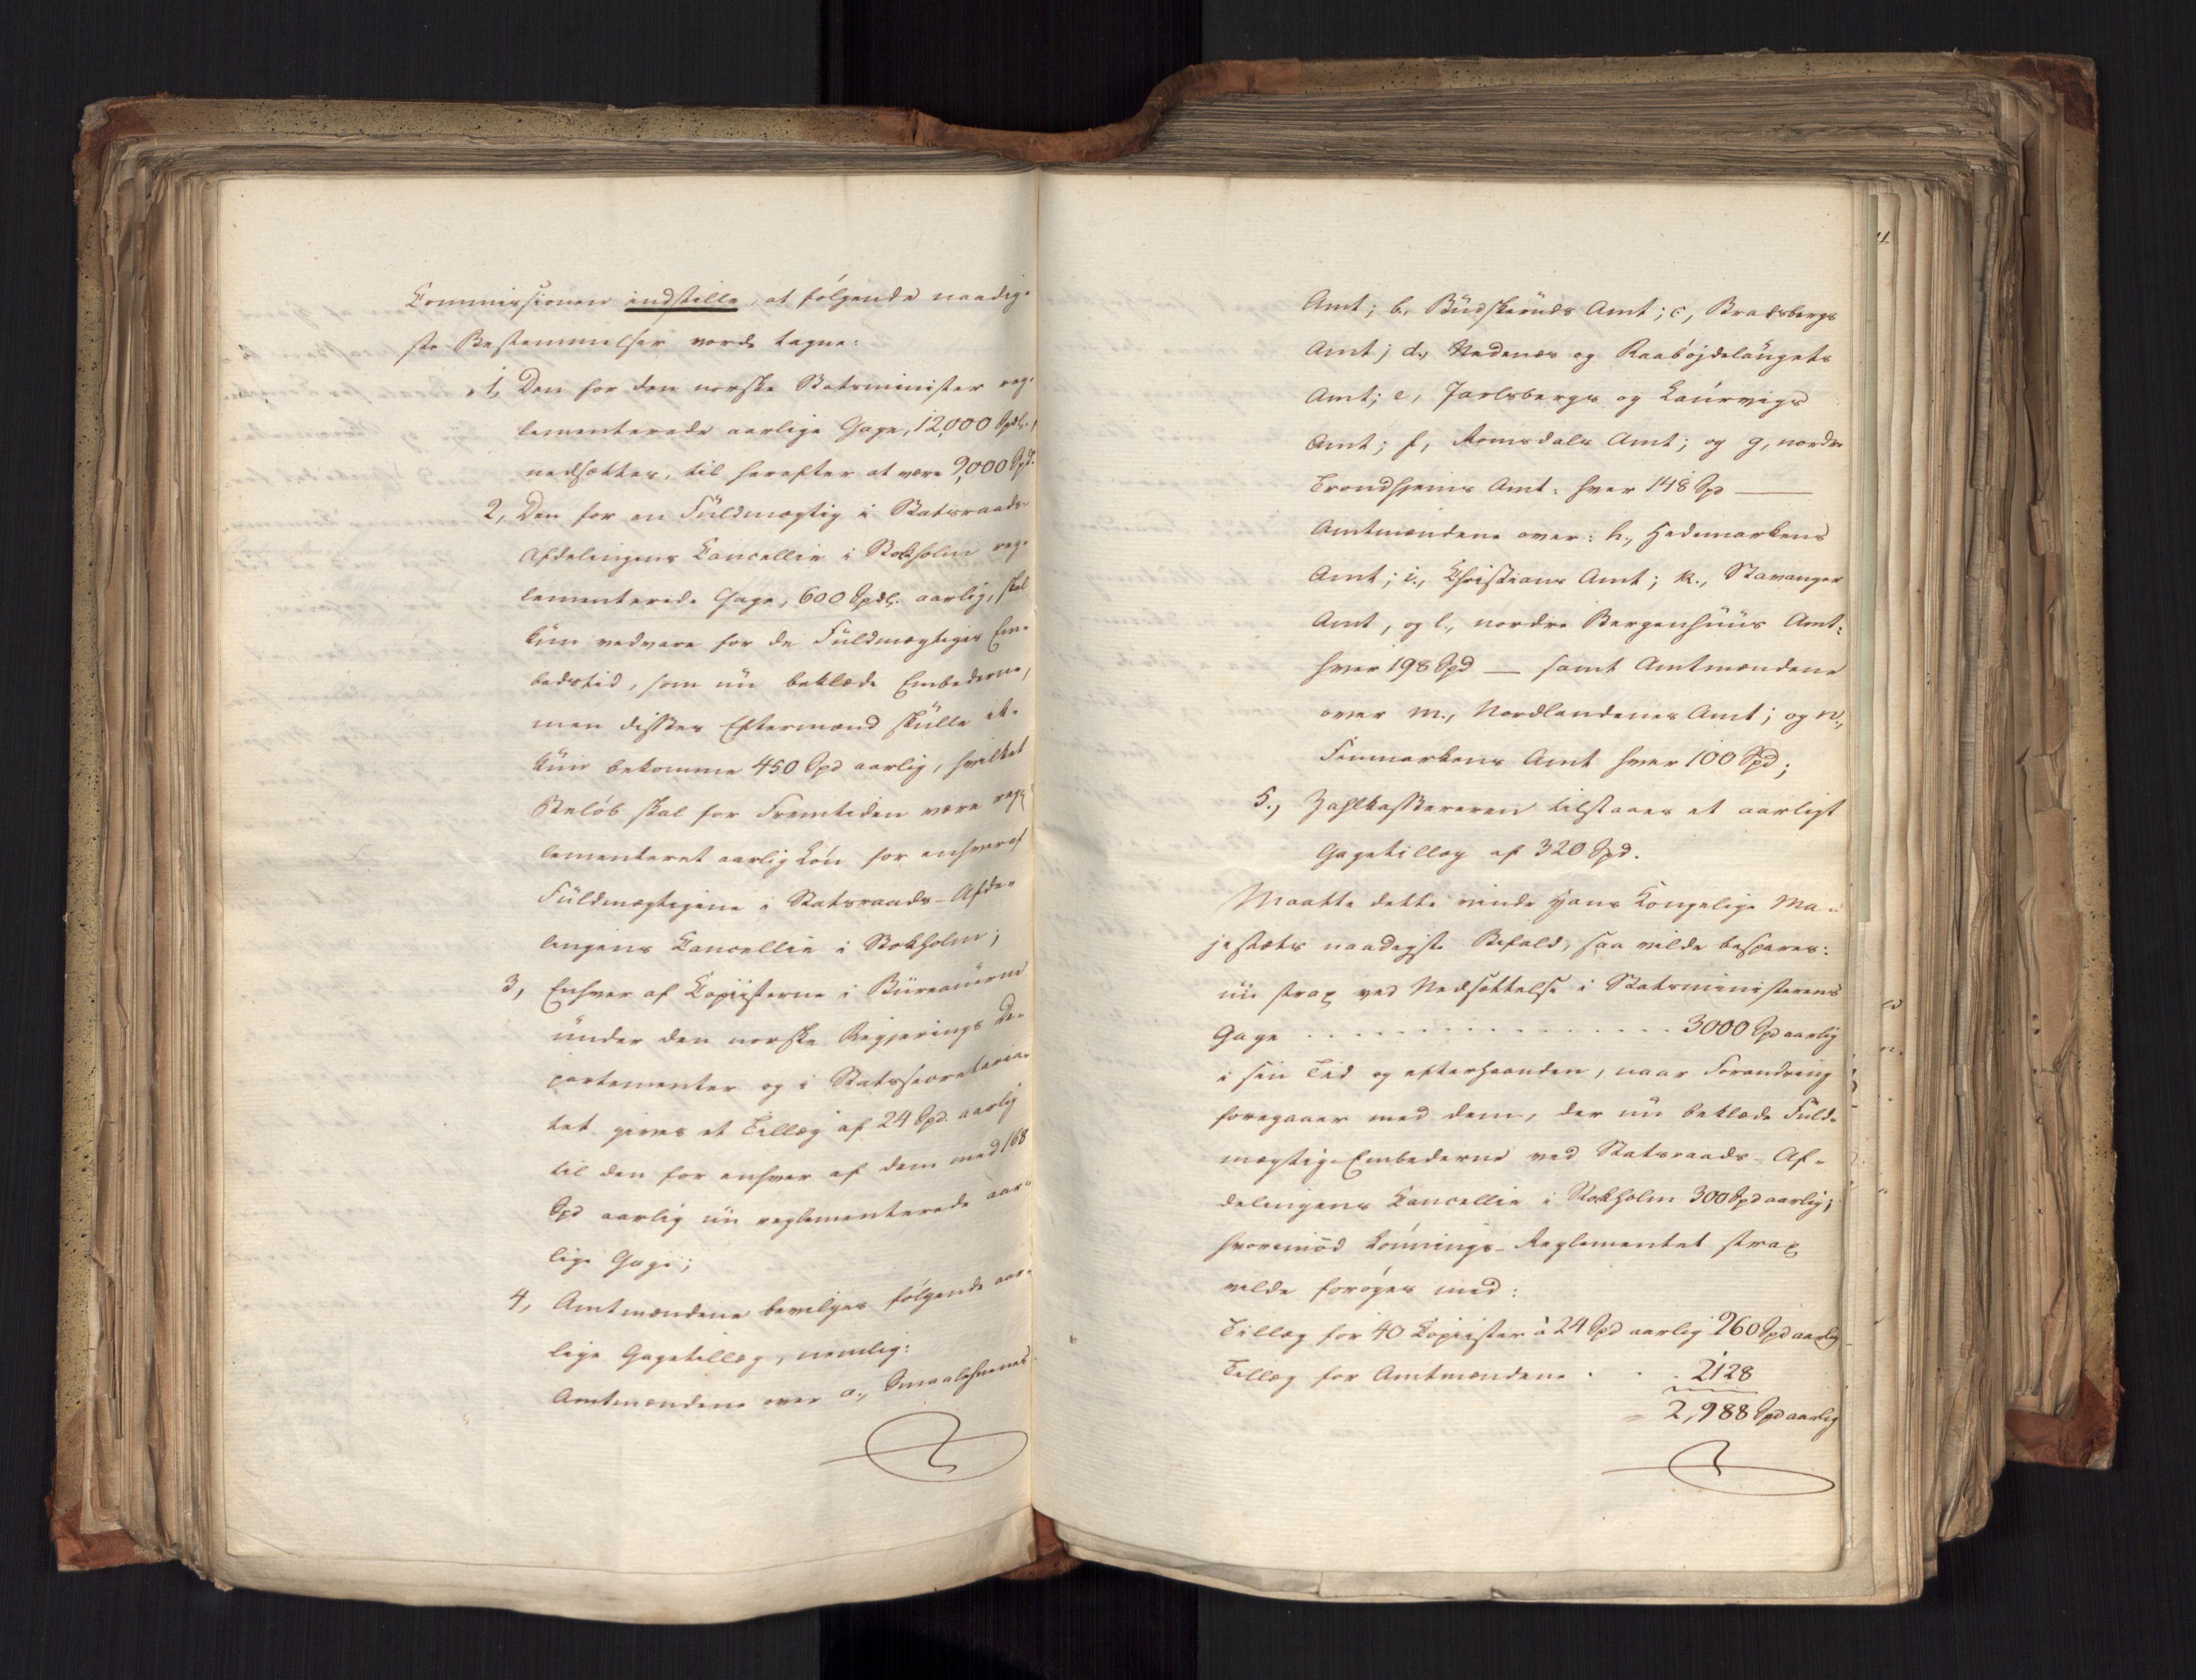 Commissionen indstille, at følgende naadig-
ste Bestemmelser vorde tagne:
1, Den for den norske Statsminister reg-
lementerede aarlige Gage, 12,000 Spdl.,
nedsættes, til herefter at være 9,000 Spd.
2, Den for en Fuldmægtig i Statsraads-
Afdelingens Cancellie i Stokholm reg-
lementerede Gage, 600 Spdl. aarlig, skal
kun vedvare for de Fuldmægtiges Em-
bedstid, som nu beklæde Embederne,
men disses Eftermænd skulle et.
kun bekomme 450 Spd aarlig, hvilket
Beløb skal for Fremtiden være reg-
lementeret aarlig Løn for enhver af
Fuldmægtigene i Statsraads-Afde-
lingens Cancellie i Stokholm;
3, Enhver af Copiisterne i Büreauerne
under den norske Regjerings De-
partementer og i Statssecretaria-
tet gives et Tillæg af 24 Spd. aarlig
til den for enhver af dem med 168
Spd aarlig nu reglementerede aar-
lige Gage;
4, Amtmændene bevilges følgende aar-
lige Gagetillæg, nemlig:
Amtmændene over a., Smaalehnenes
Amt; b., Budskeruds Amt; c, Bradsbergs
Amt; d., Nedenes og Raabøjdelaugets
Amt; e, Jarlsbergs og Laurvigs
Amt; f, Romsdals Amt; og g, nordre
Trondhjems Amt: hver 148 Spd —
Amtmændene over: h., Hedemarkens
Amt; i., Christians Amt; k., Stavanger
Amt, og l., nordre Bergenhuus Amt:
hver 198 Spd — samt Amtmændene
over m., Nordlandenes Amt; og n.,
Finmarkens Amt hver 100 Spd;
5., Zahlkassereren tilstaaes et aarligt
Gagetillæg af 320 Spd.
Maatte dette vinde Hans Kongelige Ma-
jestæts naadigste Bifald, saa vilde bespares:
nu strax ved Nedsættelse i Statsministerens
Gage . . . . . . . . . . . . . . . 3000 Spd aarlig
i sin Tid og efterhaanden, naar Forandring
foregaaer med dem, der nu beklæde Fuld-
mægtig-Embederne ved Statsraads-Af-
delingens Cancellie i Stokholm 300 Spd aarlig;
hvorimod Lønnings-Reglementet strax
vilde forøges med:
Tillæg for 40 Copiister à 24 Spd aarlig 960 Spd aarlig
Tillæg for Amtmændene . . . 2128
= 2,988 Spd aarlig